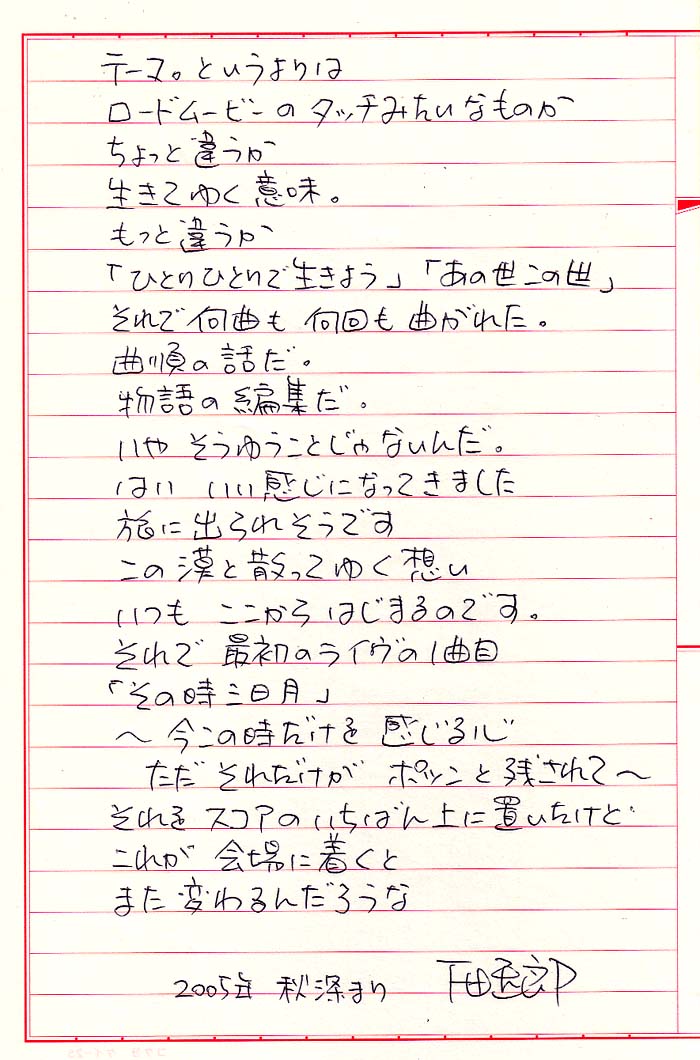 テーマ。というよりは
ロードムービーのタッチみたいなものか
ちょっと違うか
生きてゆく意味。
もっと違うか
「ひとりひとりで生きよう」「あの世この世」
それで何曲も 何回も 曲がれた。
曲順の話だ。
物語の編集だ。
いや そうゆうことじゃないんだ。
はい いい感じになってきました
旅に出られそうです
この漠と散ってゆく想い
いつも ここから はじまるのです。
それで 最初のライヴの1曲目
「その時三日月」
〜 今この時だけを 感じる心
ただ それだけが ポツンと残されて〜
それを スコアの いちばん上に置いたけど
これが 会場に着くと
また変わるんだろうな
2005年 秋深まり